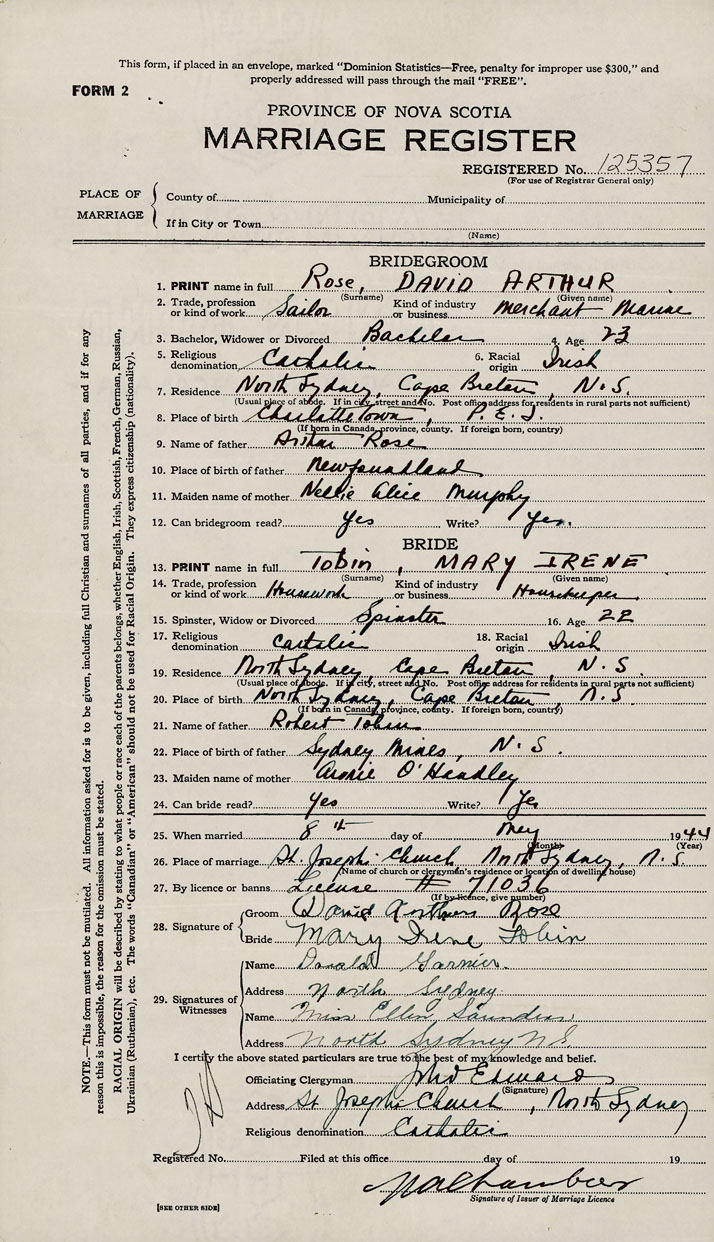 This form, if placed in an envelope, marked "Dominion Statistics—Free, penalty for improper use $300," and
properly addressed will pass through the mail "FREE".
FORM 2
PROVINCE OF NOVA SCOTIA
MARRIAGE REGISTER
REGISTERED No. 125357
(For use of Registrar General only)
PLACE OF MARRIAGE
County of Municipality of
If in City or Town
(Name)
BRIDEGROOM
1. PRINT name in full Rose, DAVID ARTHUR
(Surname) (Given name)
2. Trade, profession or kind of work Sailor Kind of industry or business Merchant Marine
3. Bachelor, Widower or Divorced Bachelor 4. Age 23
5. Religious denomination Catholic 6. Racial origin Irish
7. Residence North Sydney, Cape Breton, N.S.
(Usual place of abode. If in city, street and No. Post office address for residents in rural parts not sufficient)
8. Place of birth Charlottetown, P.E.I.
(If born in Canada, province, county. If foreign born, country)
9. Name of father Arthur Rose
10. Place of birth of father Newfoundland
11. Maiden name of mother Nellie Alice Murphy
12. Can bridegroom read? Yes Write? Yes.
BRIDE
13. PRINT name in full Tobin, MARY IRENE
(Surname) (Given name)
14. Trade, profession or kind of work Housework Kind of industry or business Housekeeper
15. Spinster, Widow or Divorced Spinster 16. Age 22
17. Religious denomination Catholic 18. Racial origin Irish
19. Residence North Sydney, Cape Breton, N.S.
(Usual place of abode. If in city, street and No. Post office address for residents in rural parts not sufficient)
20. Place of birth North Sydney, Cape Breton, N.S.
(If born in Canada, province, county. If foreign born, country)
21. Name of father Robert Tobin
22. Place of birth of father Sydney Mines, N.S.
23. Maiden name of mother Annie O'Handley
24. Can bride read? Yes Write? Yes
25. When married 8th day of May 1944
(Month) (Year)
26. Place of marriage St. Joseph's Church North Sydney, N.S.
(Name of church or clergyman's residence or location of dwelling house)
27. By licence or banns License # 71036
(If by licence, give number)
28. Signature of
Groom David Arthur Rose
Bride Mary Irene Tobin
29. Signatures of Witnesses
Name Donald Garnier.
Address North Sydney.
Name Miss Ellen Saunders
Address North Sydney N.S.
I certify the above stated particulars are true to the best of my knowledge and belief.
Officiating Clergyman
(Signature)
Address St Joseph's Church, North Sydney
Religious denomination Catholic
Registered No. Filed at this office day of 19
Signature of Issuer of Marriage Licence
[SEE OTHER SIDE]
NOTE.—This form must not be mutilated. All information asked for is to be given, including full Christian and surnames of all parties, and if for any
reason this is impossible, the reason for the omission must be stated.
RACIAL ORIGIN will be described by stating to what people or race each of the parents belongs, whether English, Irish, Scottish, French, German, Russian,
Ukrainian (Ruthenian), etc. The words "Canadian" or "American" should not be used for Racial Origin. They express citizenship (nationality).